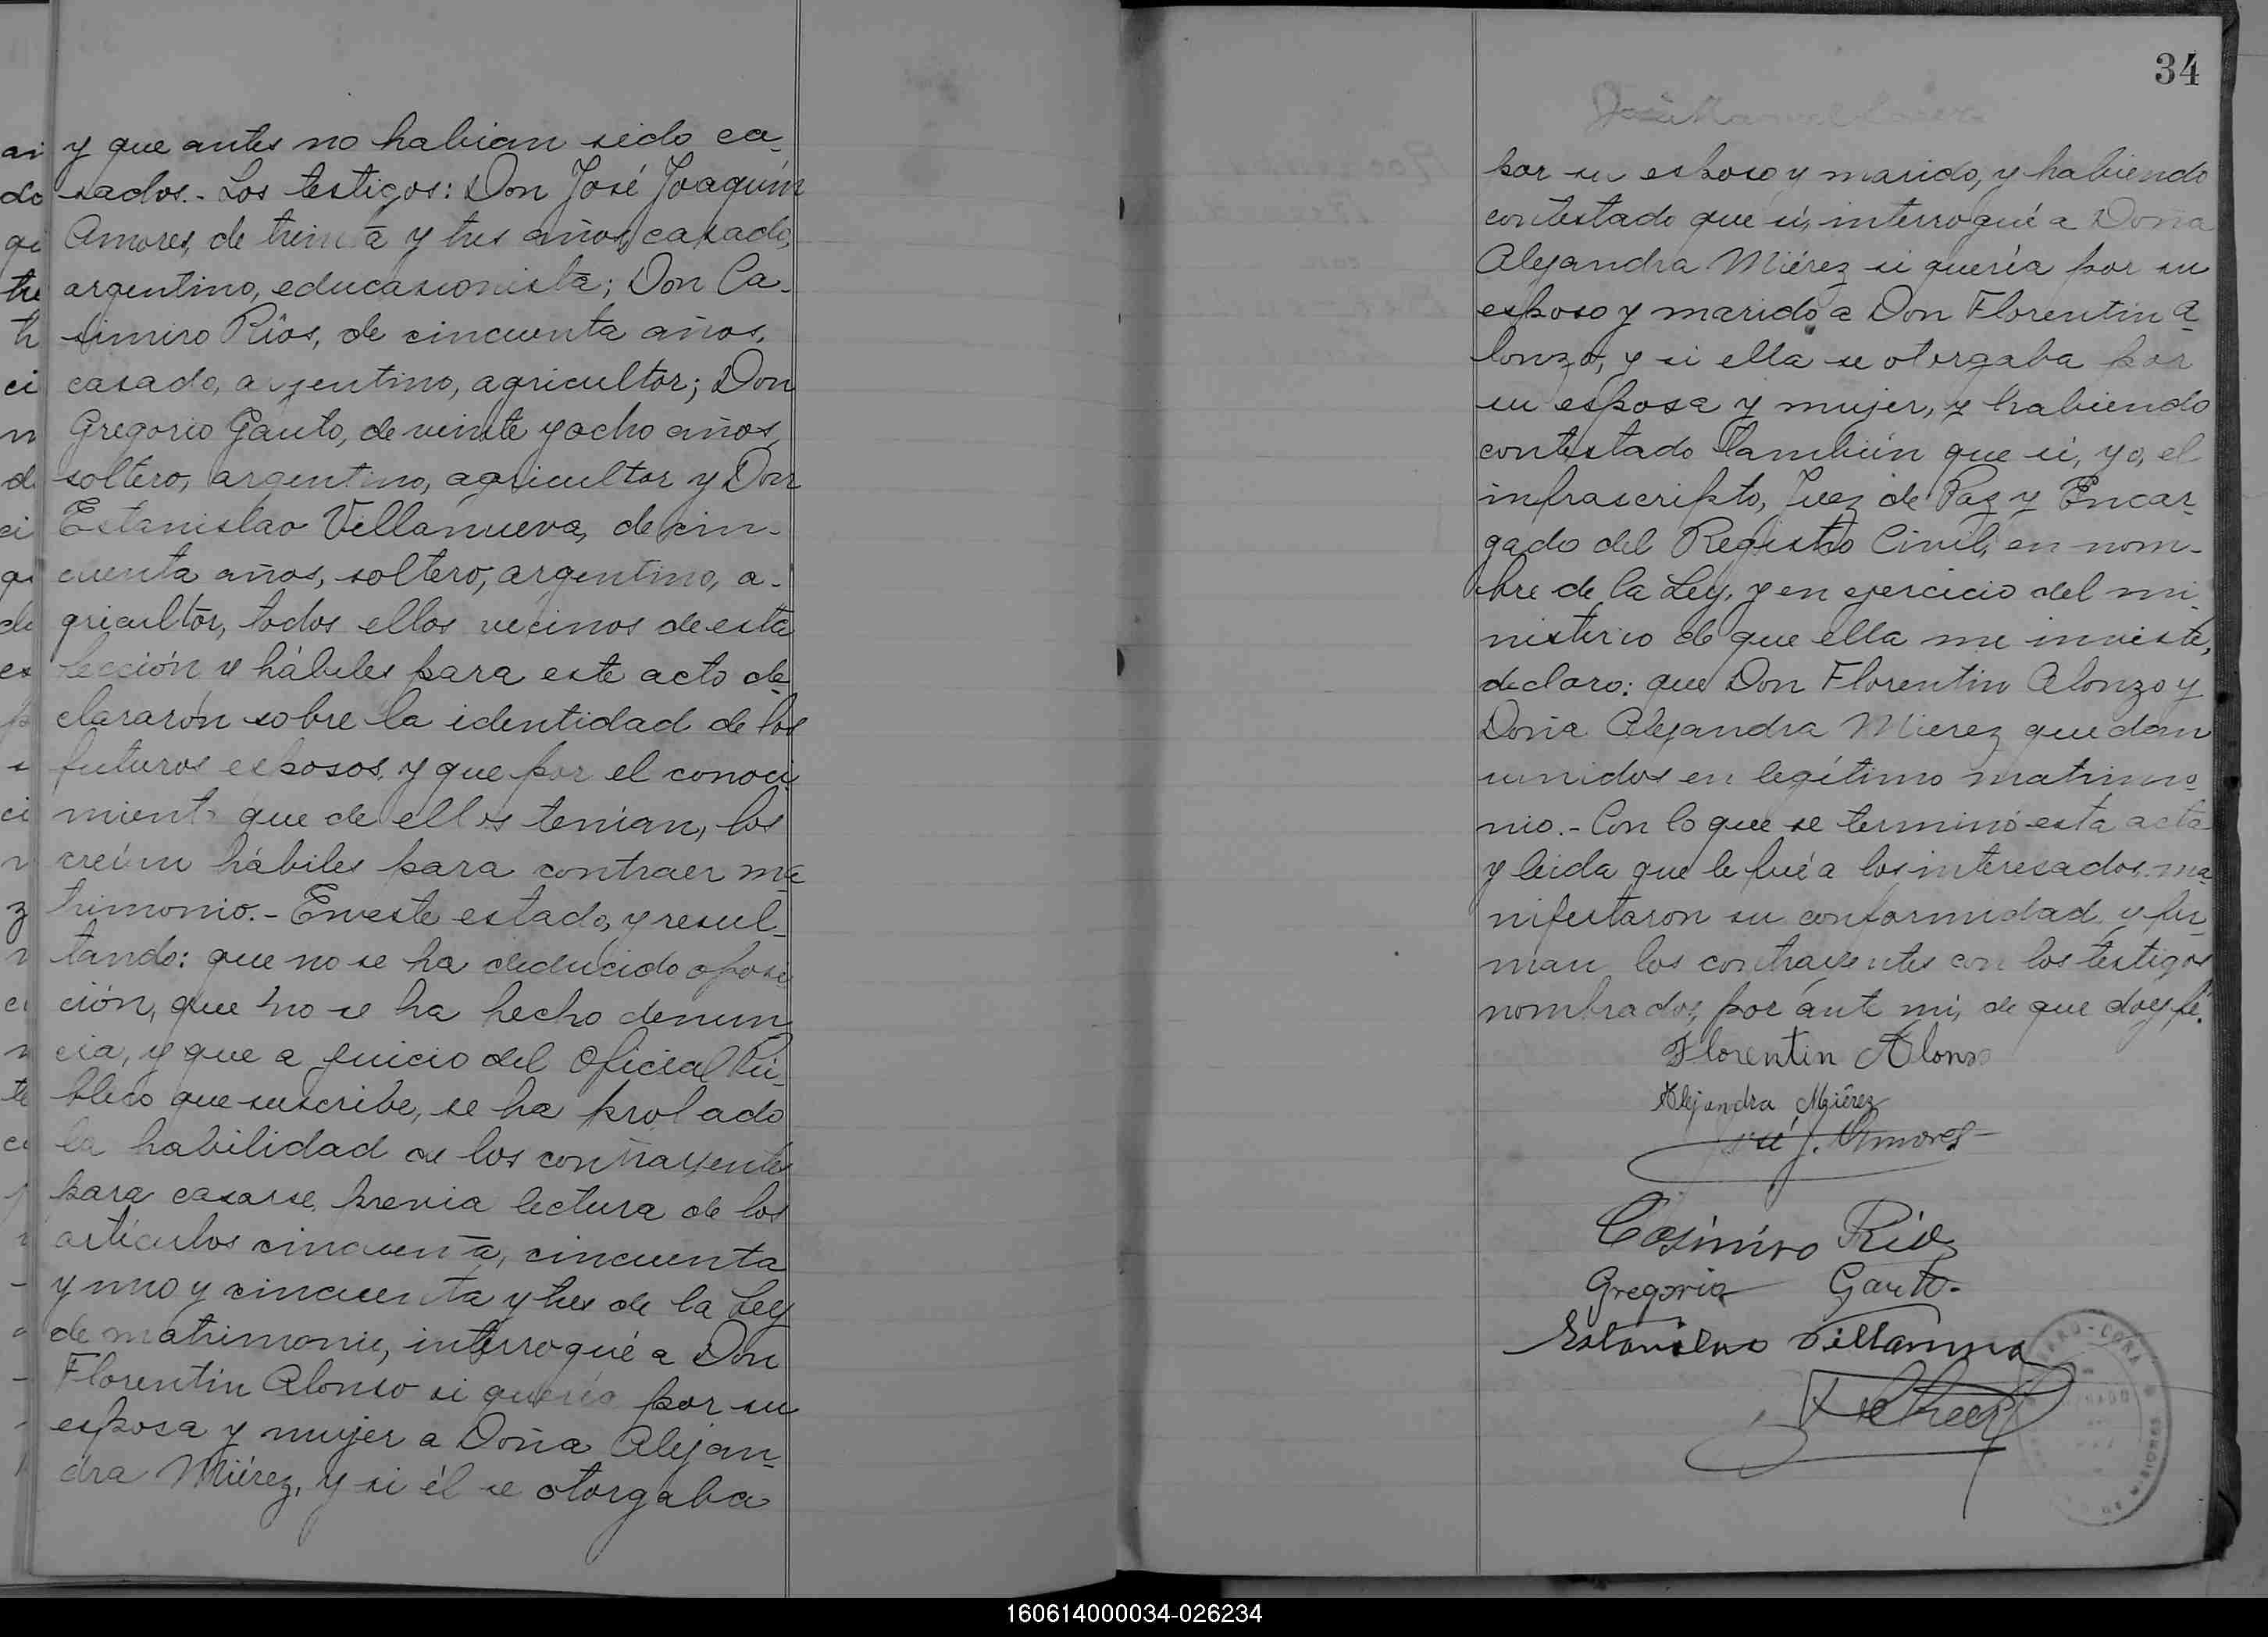 y que antes no habian sido ca-
sados.- Los testigos: Don José Joaquín
Amores, de treinta y tres años, casado,
argentino, educasionista; Don Ca-
simiro Ríos, de cincuenta años,
casado, argentino, agricultor; Don
Gregorio Gauto, de veinte y ocho años,
soltero, argentino, agricultor y Don
Estanislao Villanueva, de cin-
cuenta años, soltero, argentino, a-
gricultor, todos ellos vecinos de esta
sección y hábiles para este acto de-
clararón sobre la identidad de los
futuros esposos, y que por el conoci-
miento que de ellos tenían, los
creían hábiles para contraer ma-
trimonio.- En este estado, y resul-
tando: que no se ha deducido oposi
ción, que no se ha hecho denun
cia, y que a juicio del Oficial Pú-
blico que suscribe, se ha probado
la habilidad de los contrayentes
para casarse, previa lectura de los
artículos cincuenta, cincuenta
y uno y cincuenta y tres de la Ley
de matrimonio, interrogué a Don
Florentin Alonso si quería por su
esposa y mujer a Doña Alejan-
dra Miérez, y si él se otorgaba
34
por su esposo y marido, y habiendo
contestado que sí, interrogué a Doña
Alejandra Miérez si quería por su
esposo y marido a Don Florentin A-
lonzo, y si ella se otorgaba por
su esposa y mujer, y habiendo
contestado también que sí, yo, el
infrascripto, Juez de Paz y Encar-
gado del Registro Civil, en nom-
bre de la Ley, y en ejercicio del mi-
nisterio de que ella me inviste,
declaro: que Don Florentin Alonzo y
Doña Alejandra Mierez quedan
unidos en legítimo matrimo-
nio.- Con lo que se terminó esta acta
y leida que le fué a los interesados, ma-
nifestaron su conformidad, y fir-
man los contrayentes con los testigos
nombrados, por ánte mí, de que doy fé.
Florentin Alonso
Alejandra Miérez
José J. Amores
Casimiro Rios
Gregorio Gauto.
Estanislao Villanueva
160614000034-026234